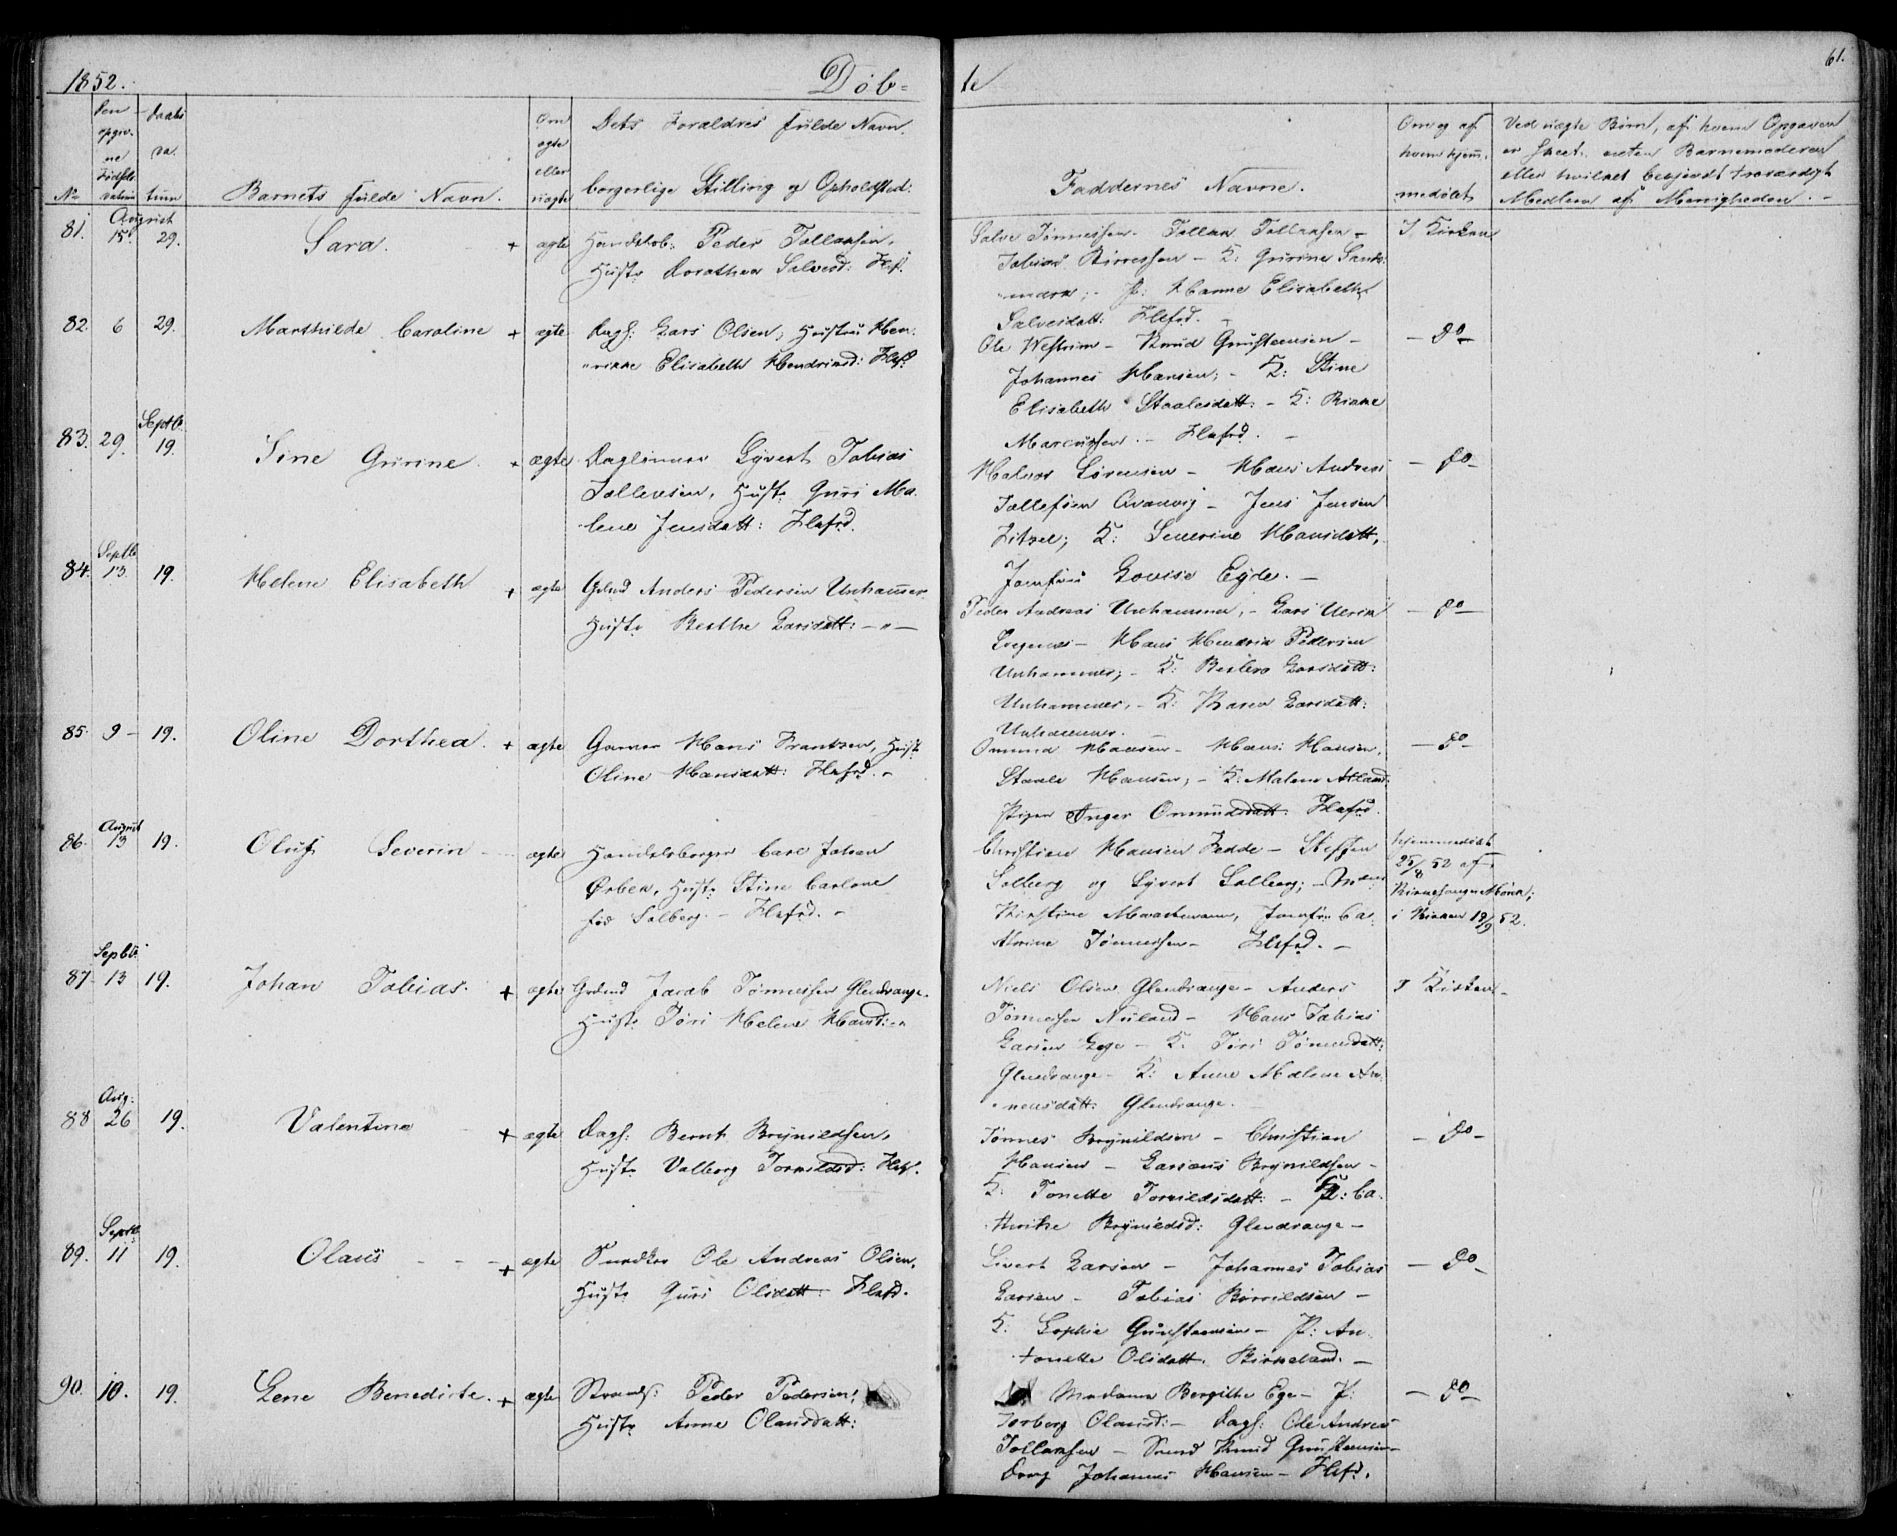 1852.
Døb-
te
61.
No
den opgivne Fødselsdatum
Daabsdatum
Barnets fulde Navn.
Om ægte eller uægte
Dets Forældres fulde Navn.
borgerlige Stilling og Opholdsted:
Faddernes Navne.
Om og af hvem hjemmedøbt
Ved uægte Børn, af hvem Opgaven
er skeet, enten Barnemoderen
eller hvilket besjendt troværdigt
Medlem af Menigheden. -
81. August 15. 29. Sara. + ægte
Handelsb: Peder Tollaksen,
Hustr Dorothea Salvesd: Flefd.
Salve Tønnessen - Tollak Tollaksen -
Tobias Birresen - K: Gurine
- P: Hanne Elisabeth
Salvesdatt: Flefd. -
I Kirken
82. 6 29. Marthilde Caroline + ægte
Dagl: Lars Olsen, Hustru Hen-
rikke Elisabeth Hendriksd: Flefd
Ole Westrim - Knud Gunstensen -
Johannes Hansen; - K: Stine
Elisabeth Staalesdatt: - K: Rikke
Marcussen. - Flefd. -
- Do -
83. 29. Septb. 19. Sine Gurine. + ægte
Daglønner Syvert Tobias
Tollevsen, Hustr Guri Ma-
lene Jensdatt: Flefd.
Halvor Sørensen - Hans Andreas
Tollefsen Qvanvig - Jens Jensen
K: Severine Hansdatt,
Jomfru Lovise Eyde. -
- Do -
84. Septb 13. 19. Helene Elisabeth + ægte
Grbmd Anders Pedersen Unhammer
Hustr Berthe Larsdatt: -"-
Peder Andreas Unhammer, - Lars Ulrik
- Hans Hendrik Pedersen
Unhammer; - K: Larsdatt:
Unhammer, - K: Karen Larsdatt:
Unhammer. -
- Do -
85. 9 - 19. Oline Dorthea. + ægte
Garver Hans Frantzen, Hustr
Oline Hansdatt: Flefd. -
Ommund Hansen - Hans Hansen,
Staale Hansen; - K: Malene
Pigen Inger Ommundsdatt. Flefd.
- Do -
86. August 13 19. Oluf Severin - ægte
Handelsborger Carl Johan
Ørbek, Hustr Stine Carlone
fød Salberg. - Flefd. -
Christian Hansen Fedde - Steffen
Solberg og Syvert Solberg; - Mad
Kirstine Jomfru Ca-
thrine Tønnessen - Flefd. -
hjemmedøbt
25/8 52 af
Kirkesanger Mørch;
i Kirken 19/9 52.
87. Septb. 13 19. Johan Tobias. + ægte
Grdmd Jacob Tønnessen Glendrange.
Hustr Tøri Helene Hansd: -"
Niels Olsen Glendrange - Anders
Tønnessen Nuland - Hans Tobias
Larsen Ege - K. Tøri Tønnesdatt:
Glendrange - K: Anne Malene Tøn-
nesdatt: Glendrange. -
I Kirken -
88 Aug: 26 19. Valentine + ægte
Dagl: Bernt Brynildsen,
Hustr Valborg Torkildsd: Flefd.
Tønnes Brynildsen - Christian
Hansen - Larsæus Brynildsen -
K: Tonette Torkildsdatt: - K: Ca-
thrine Brynildsd: Glendrange -
- Do -
89. Septb. 11 19. Olaus - - - + ægte
Snedker Ole Andreas Olsen,
Hustr Guri Olsdatt: Flefd.
Sivert Larsen - Johannes Tobias
Larsen - Tobias Børrildsen -
K: Sophie Gunstensen - P: An-
tonette Olsdatt. Birkeland. -
- Do -
90. 10. 19. Lene Benedicte. + ægte
Strands: Peder Pedersen,
Hustr Anne Olausdatt:
Madame Bergithe Ege - P:
Torborg Olausd: - Dagl: Ole Andreas
Tollaksen - Knud Gunstensen -
Johannes Hansen - Flefd.
- Do -